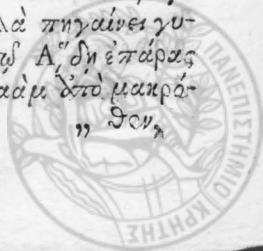 λὰ πηγαίνει γυ-
ᾅδῃ ἐπάρας
ἀὰμ ἀπὸ μακρό-
„ θεν„
ΠΑΝΕΠΙΣΤΗΜΙΟ ΚΡΗΤΗΣ